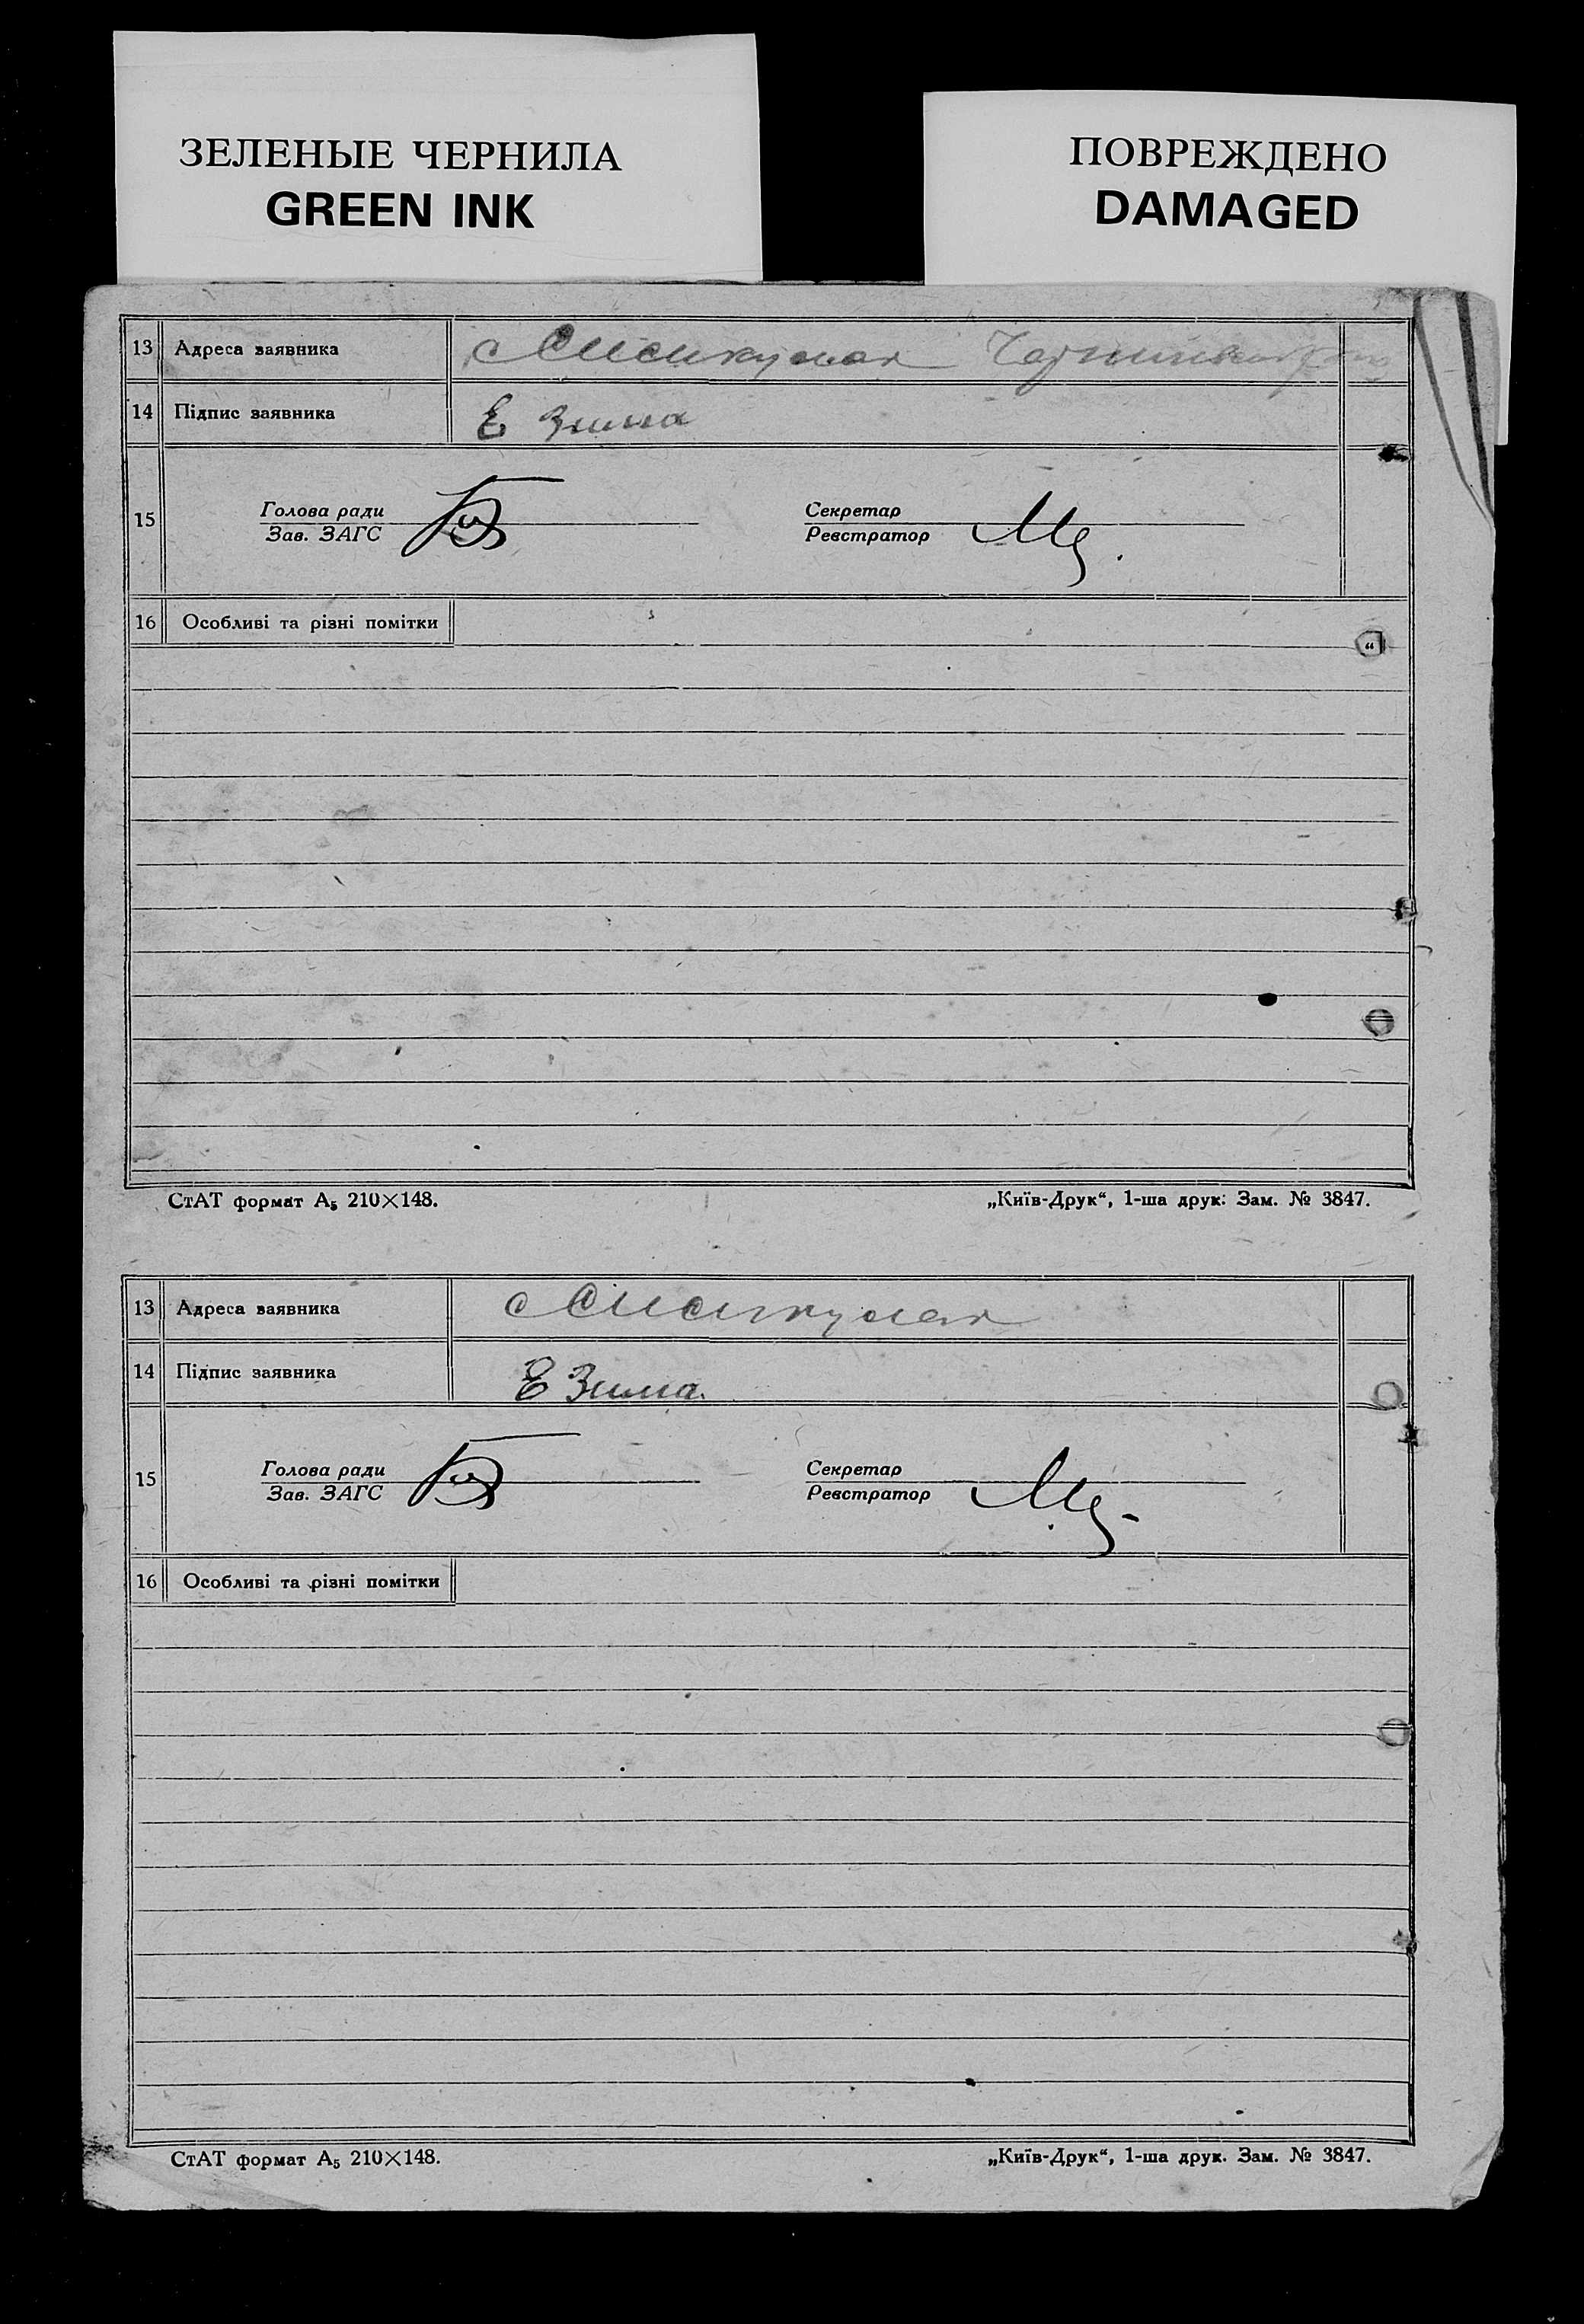 ЗЕЛЕНЫЕ ЧЕРНИЛА
GREEN INK
ПОВРЕЖДЕНО
DAMAGED
13 Адреса заявника с
14 Підпис заявника Е Зима
15 Голова ради Секретар
Зав. ЗАГС Реєстратор
16 Особливі та різні помітки
СтАТ формат А₅ 210×148. „Київ-Друк“, 1-ша друк: Зам. № 3847.
13 Адреса заявника с
14 Підпис заявника Е Зима.
15 Голова ради Секретар
Зав. ЗАГС Реєстратор
16 Особливі та різні помітки
СтАТ формат А₅ 210×148. „Київ-Друк“, 1-ша друк. Зам. № 3847.